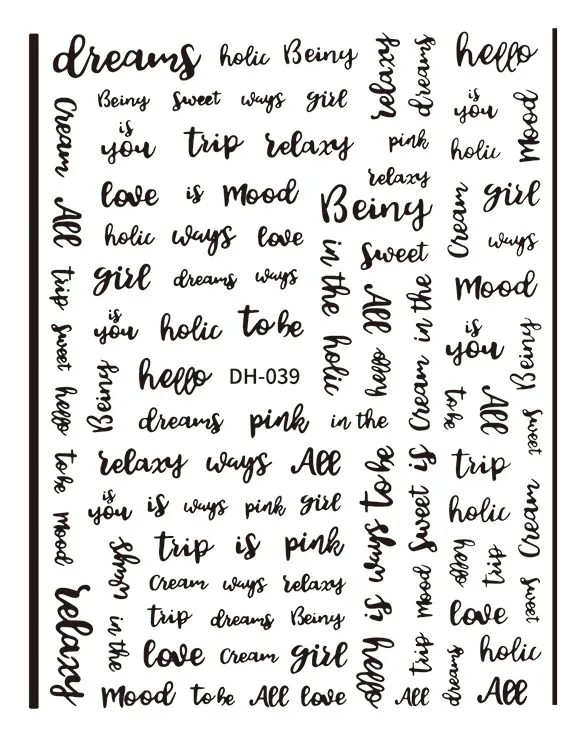 dreams holic Being
relaxy
dreams
hello
Cream
Being sweet ways girl
is
you
Mood
is
you
trip relaxy
pink
holic
relaxy
love is Mood
Being
Cream
girl
All
holic ways love
in the
Sweet
ways
trip
girl dreams ways
All
in the
Mood
is
you
holic to be
holic
is
you
Being
sweet
Being
hello DH-039
hello
Cream
to be
All
hello
dreams pink in the
sweet
relaxy ways All
to be
is
trip
to be
is
you
is ways pink girl
ways
Sweet
holic
Cream
Mood
ways
trip is pink
is
Mood
hello
trip
Cream ways relaxy
sweet
relaxy
in the
trip dreams Being
hello
trip
love
love Cream girl
dreams
holic
Mood to be All love
All
All